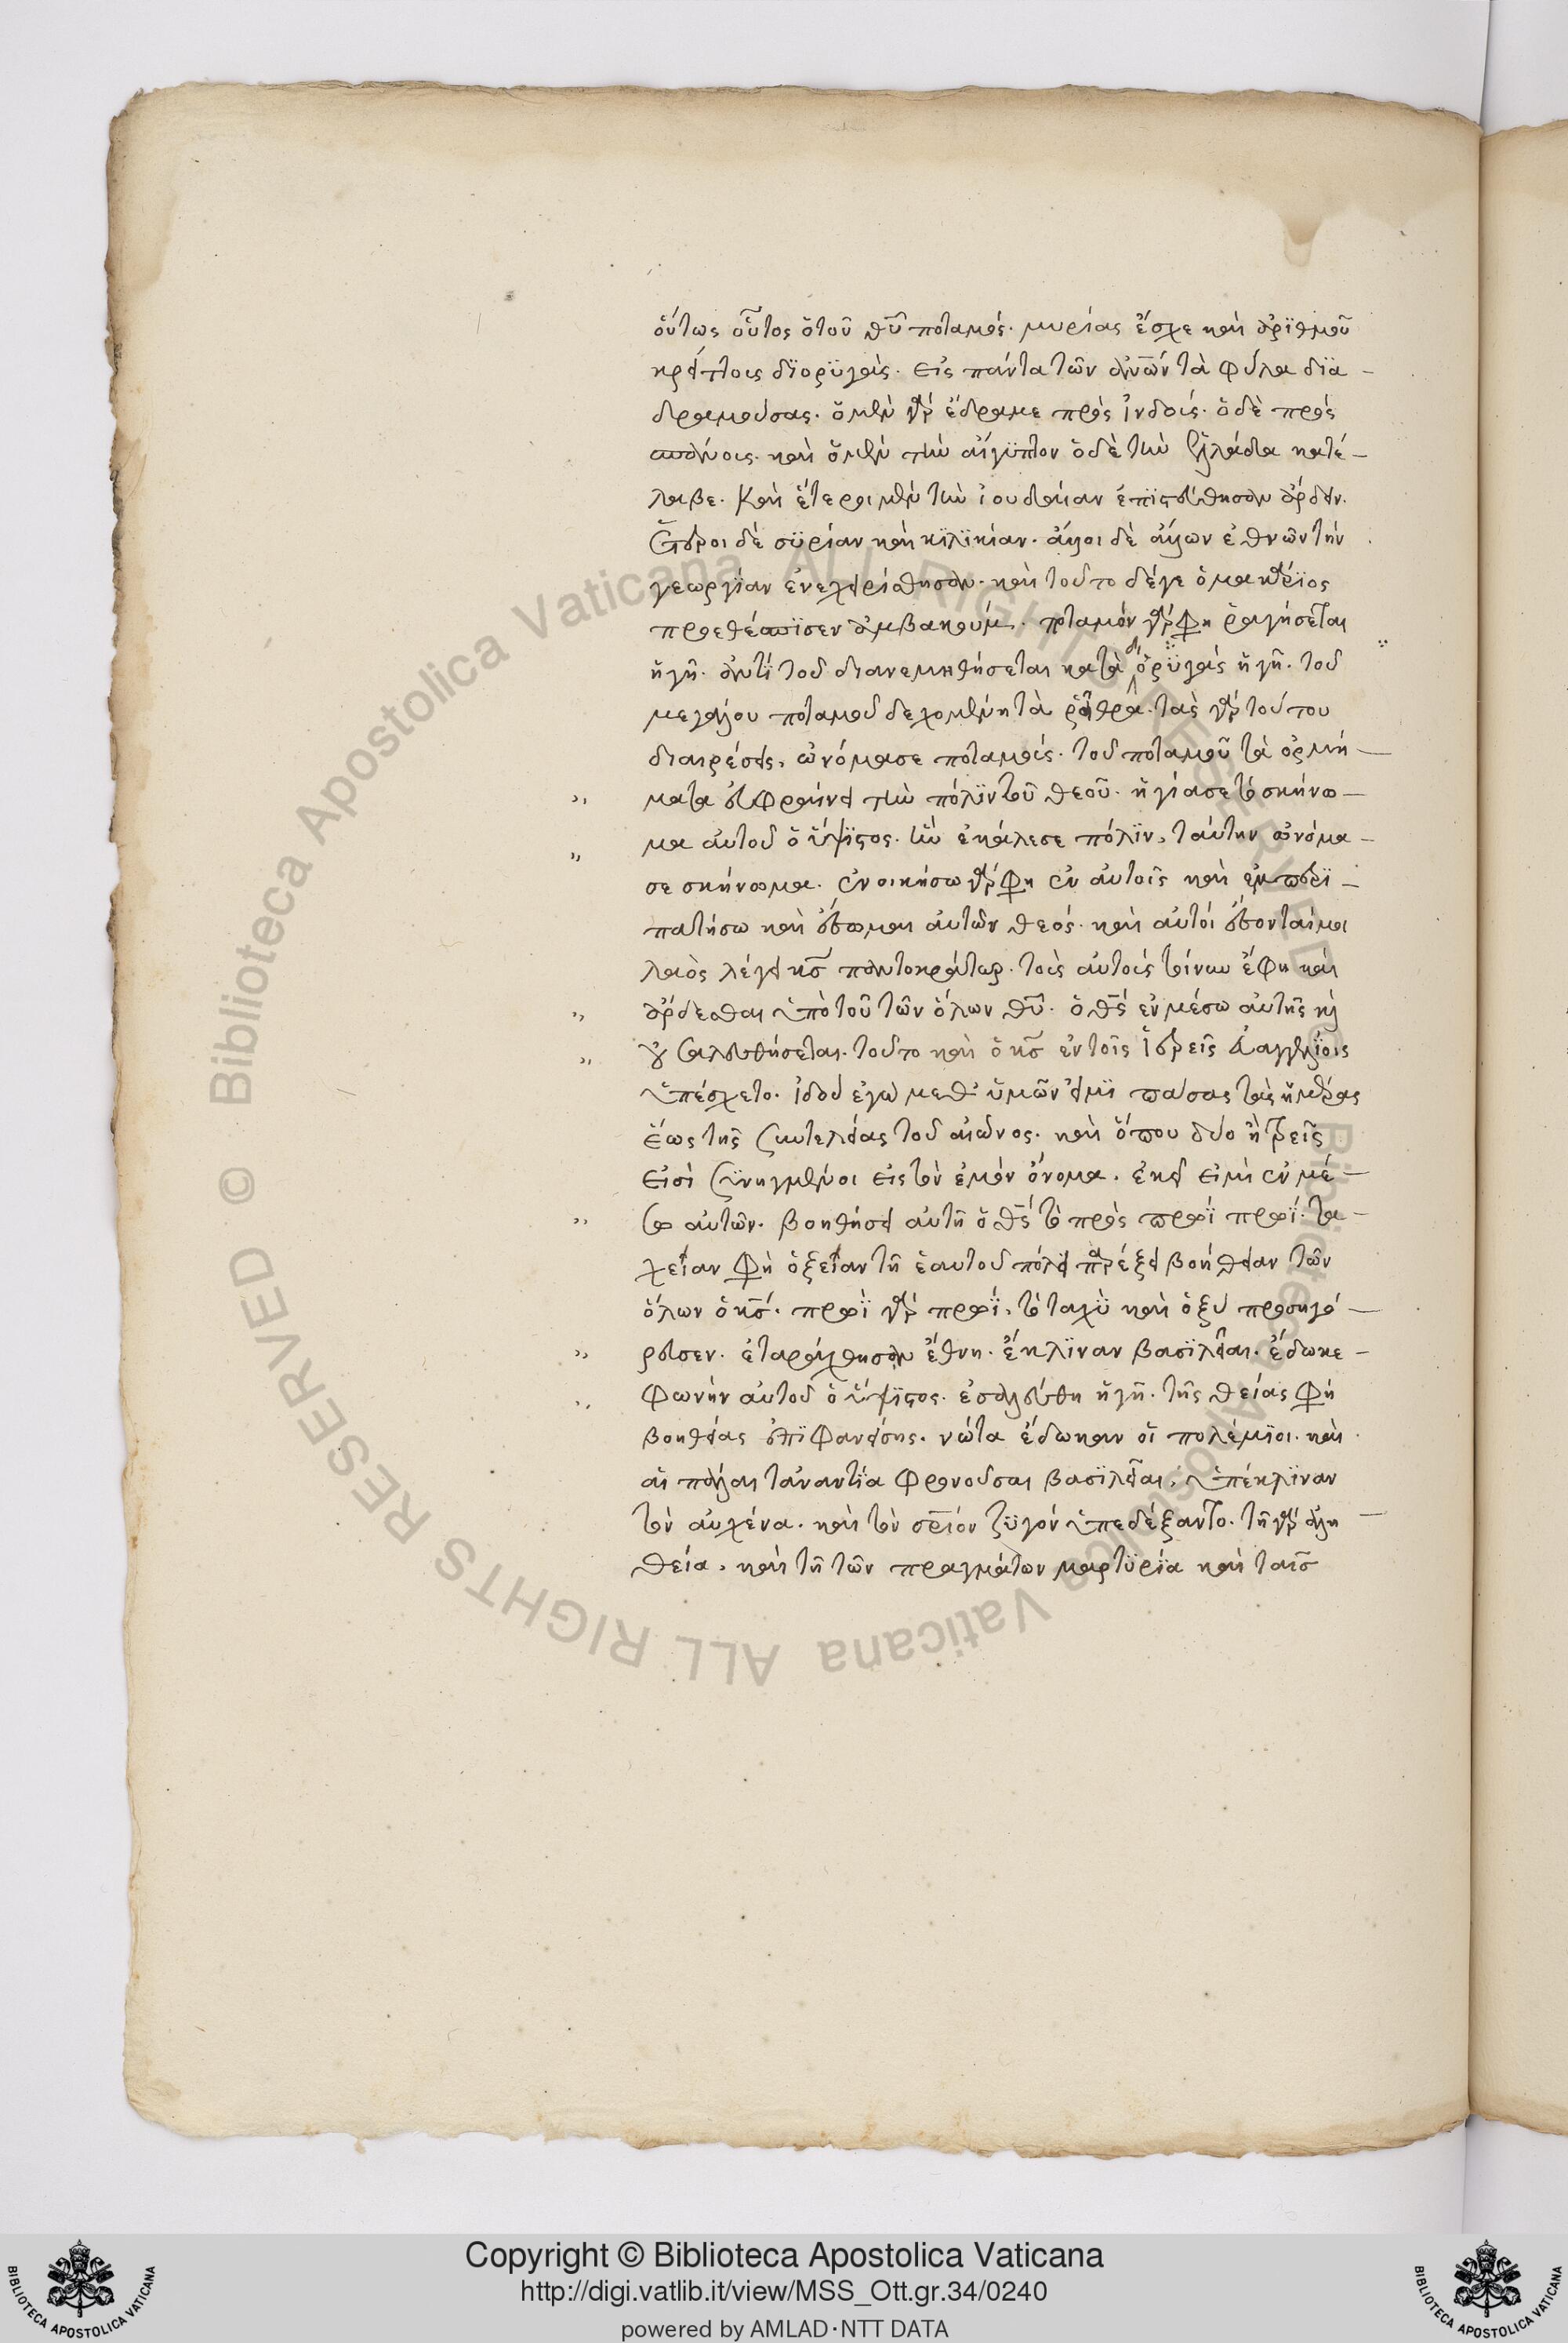 οὕτως οὗτος ὁ τοῦ θῡ ποταμός. μυρίας ἔσχε καὶ ἀρϊθμοῦ
κρείττοις δϊορϋγὰς. εἰς πάντα τῶν ἀν̅ων τὰ φύλα δϊα –
δραμούσας. ὁ μὲν γὰρ ἔδραμε πρὸς ἰνδοὺς. ὁ δὲ πρὸς
ϊσπάνους. καὶ ὁ μὲν τὴν αἴγϋπτον ὁ δὲ τὴν ἑλλάδα κατέ –
λαβε. Καὶ ἕτεροι μὲν τὴν ἰουδαίαν ἐπϊστεύθησαν ἄρδειν.
ἕτεροι δὲ σϋρίαν καὶ κϊλϊκίαν. ἄλλοι δὲ ἄλλων ἐθνῶν τὴν
γεωργΐαν ἐνεχειρίσθησαν. καὶ τοῦτο δέγε ὁ μακάρϊος
προεθέσπϊσεν ἀμβακούμ. ποταμόν γὰρ φη ῥαγήσεται
ἡ γῆ. ἀντὶ τοῦ διανεμηθήσεται κατὰ δϊορϋγὰς ἡ γῆ. τοῦ
μεγάλου ποταμοῦ δεχομένη τὰ ῥεῖθρα. τὰς γὰρ τούτου
διαιρέσεις, ὠνόμασε ποταμοὺς. τοῦ ποταμοῦ τὰ ὁρμή –
,, ματα εὐφραίνει τὴν πόλϊν τοῦ θεοῦ. ἡγίασε τὸ σκήνω –
,, μα αὐτοῦ ὁ ὕψϊστος. ἣν ἐκάλεσε πόλϊν, ταύτην ὠνόμα –
σε σκήνωμα. ἐνοικήσω γὰρ φη ἐν αὐτοῖς καὶ ἐμπερϊ –
πατήσω καὶ ἔσομαι αὐτῶν θεός. καὶ αὐτοί ἔσονταί μοι
λαὸς λέγει κς̅ παντοκράτωρ. τοὺς αὐτοὺς τοίνυν ἔφη καὶ
,, ἄρδεσθαι ὑπὸ τοῦ τῶν ὅλων θῡ. ὁ θς̅ ἐν μέσω αὐτῆς κὶ
,, οὐ σαλευθήσεται. τοῦτο καὶ ὁ κς̅ ἐν τοῖς ἱεροῖς εὐαγγελΐοις
ὑπέσχετο. ἰδοὺ ἐγὼ μεθ' ὑμῶν εἰμϊ πάσας τὰς ἡμέρας
ἕως τῆς συντελείας τοῦ αἰῶνος. καὶ ὅπου δύο ἢ τρεῖς
εἰσὶ συνηγμένοι εἰς τὸν ἐμὸν ὄνομα. ἐκεῖ εἰμὶ ἐν μέ –
,, σω αὐτῶν. βοηθήσει αὐτῆ ὁ θς̅ τὸ πρὸς πρωϊ πρωΐ. τα –
χεῖαν φη ὀξεῖαν τῆ ἑαυτοῦ πόλει παρέξει βοήθειαν τῶν
ὅλων ὁ κς̅. πρωϊ γὰρ πρωΐ, τὸ ταχϋ καὶ ὀξὺ προσηγό –
,, ρευσεν. ἐταράχθησαν ἔθνη. ἔκλϊναν βασϊλεῖαι. ἔδωκε –
,, φωνὴν αὐτοῦ ὁ ὕψϊστος. ἐσαλεύθη ἡ γῆ. τῆς θείας φη
βοηθείας ἐπϊφανείσης. νώτα ἔδωκαν οἱ πολέμϊοι. καὶ
αἱ πάλαι τἀναντΐα φρονοῦσαι βασϊλεῖαι, ὑπέκλϊναν
τὸν αὐχένα. καὶ τὸν σρ̅ιόν ζϋγόν ὑπεδέξαντο. τῆ γὰρ ἀλη –
θεία, καὶ τῆ τῶν πραγμάτων μαρτϋρΐα καὶ ταῖς
Copyright © Biblioteca Apostolica Vaticana
http://digi.vatlib.it/view/MSS_Ott.gr.34/0240
powered by AMLAD·NTT DATA